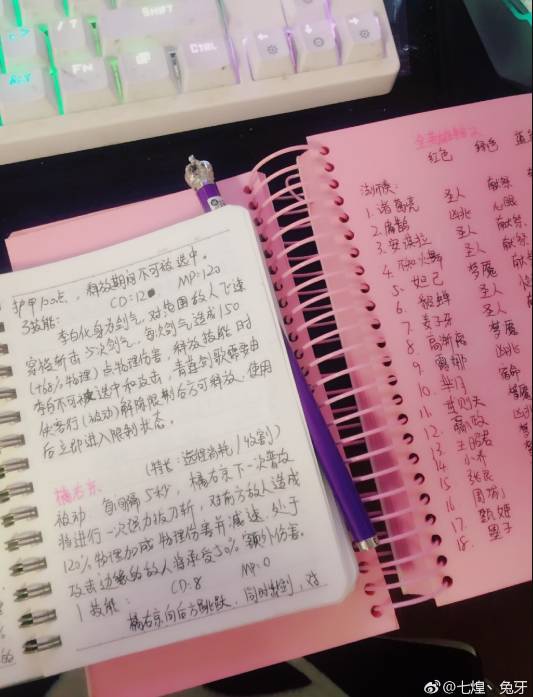 SHIFT
FN
CTRL
护甲100点，释放期间不可被选中。
CD:12 MP:120
3技能：
李白化身为剑气，对范围敌人飞速
穿梭斩击5次剑气，每次剑气造成150
(+68%物理)点物理伤害，释放技能时
李白不可被选中和攻击，青莲剑歌需要由
侠客行(被动)解除限制后方可释放，使用
后立即进入限制状态。
(特长：远程消耗/收割)
橘右京：
被动：每间隔5秒，橘右京下一次普攻
将进行一次强力拔刀斩，对前方敌人造成
120%物理加成物理伤害并减速，处于
攻击边缘的敌人将承受50%额外伤害。
1技能： CD:8 MP:0
橘右京向后方跳跃，同时挑刹，对
红色 绿色 蓝
法师系：
1. 诸葛亮 圣人 献祭
2. 扁鹊
3. 安琪拉 圣人 献祭
4. 不知火舞 圣人 献祭
5. 妲己 梦魇
6. 貂蝉 圣人
7. 姜子牙 圣人
8. 高渐离 梦魇
9.
10. 芈月
11. 武则天
12. 嬴政
13. 王昭君
14. 小乔
15. 张良
16. 周瑜
17. 甄姬
18. 墨子
@七煌丶兔牙